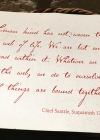 man kind has not woven t
web of life. We are but on
ead within it. Whatever w
the web, we do to ourselve
ll things are bound togeth
Chief Seattle, Suquamish L